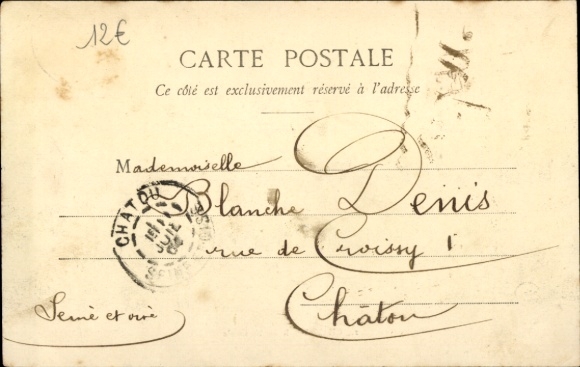 12€
CARTE POSTALE
Ce côté est exclusivement réservé à l'adresse
Mademoiselle
Blanche Denis
rue de Croissy 1
Châtou
CHATOU
JUIL
Seine et oise